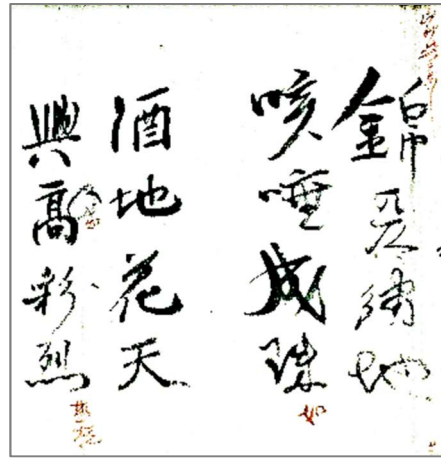 錦天繡地
咳唾成珠
如
酒地花天
興高彩烈